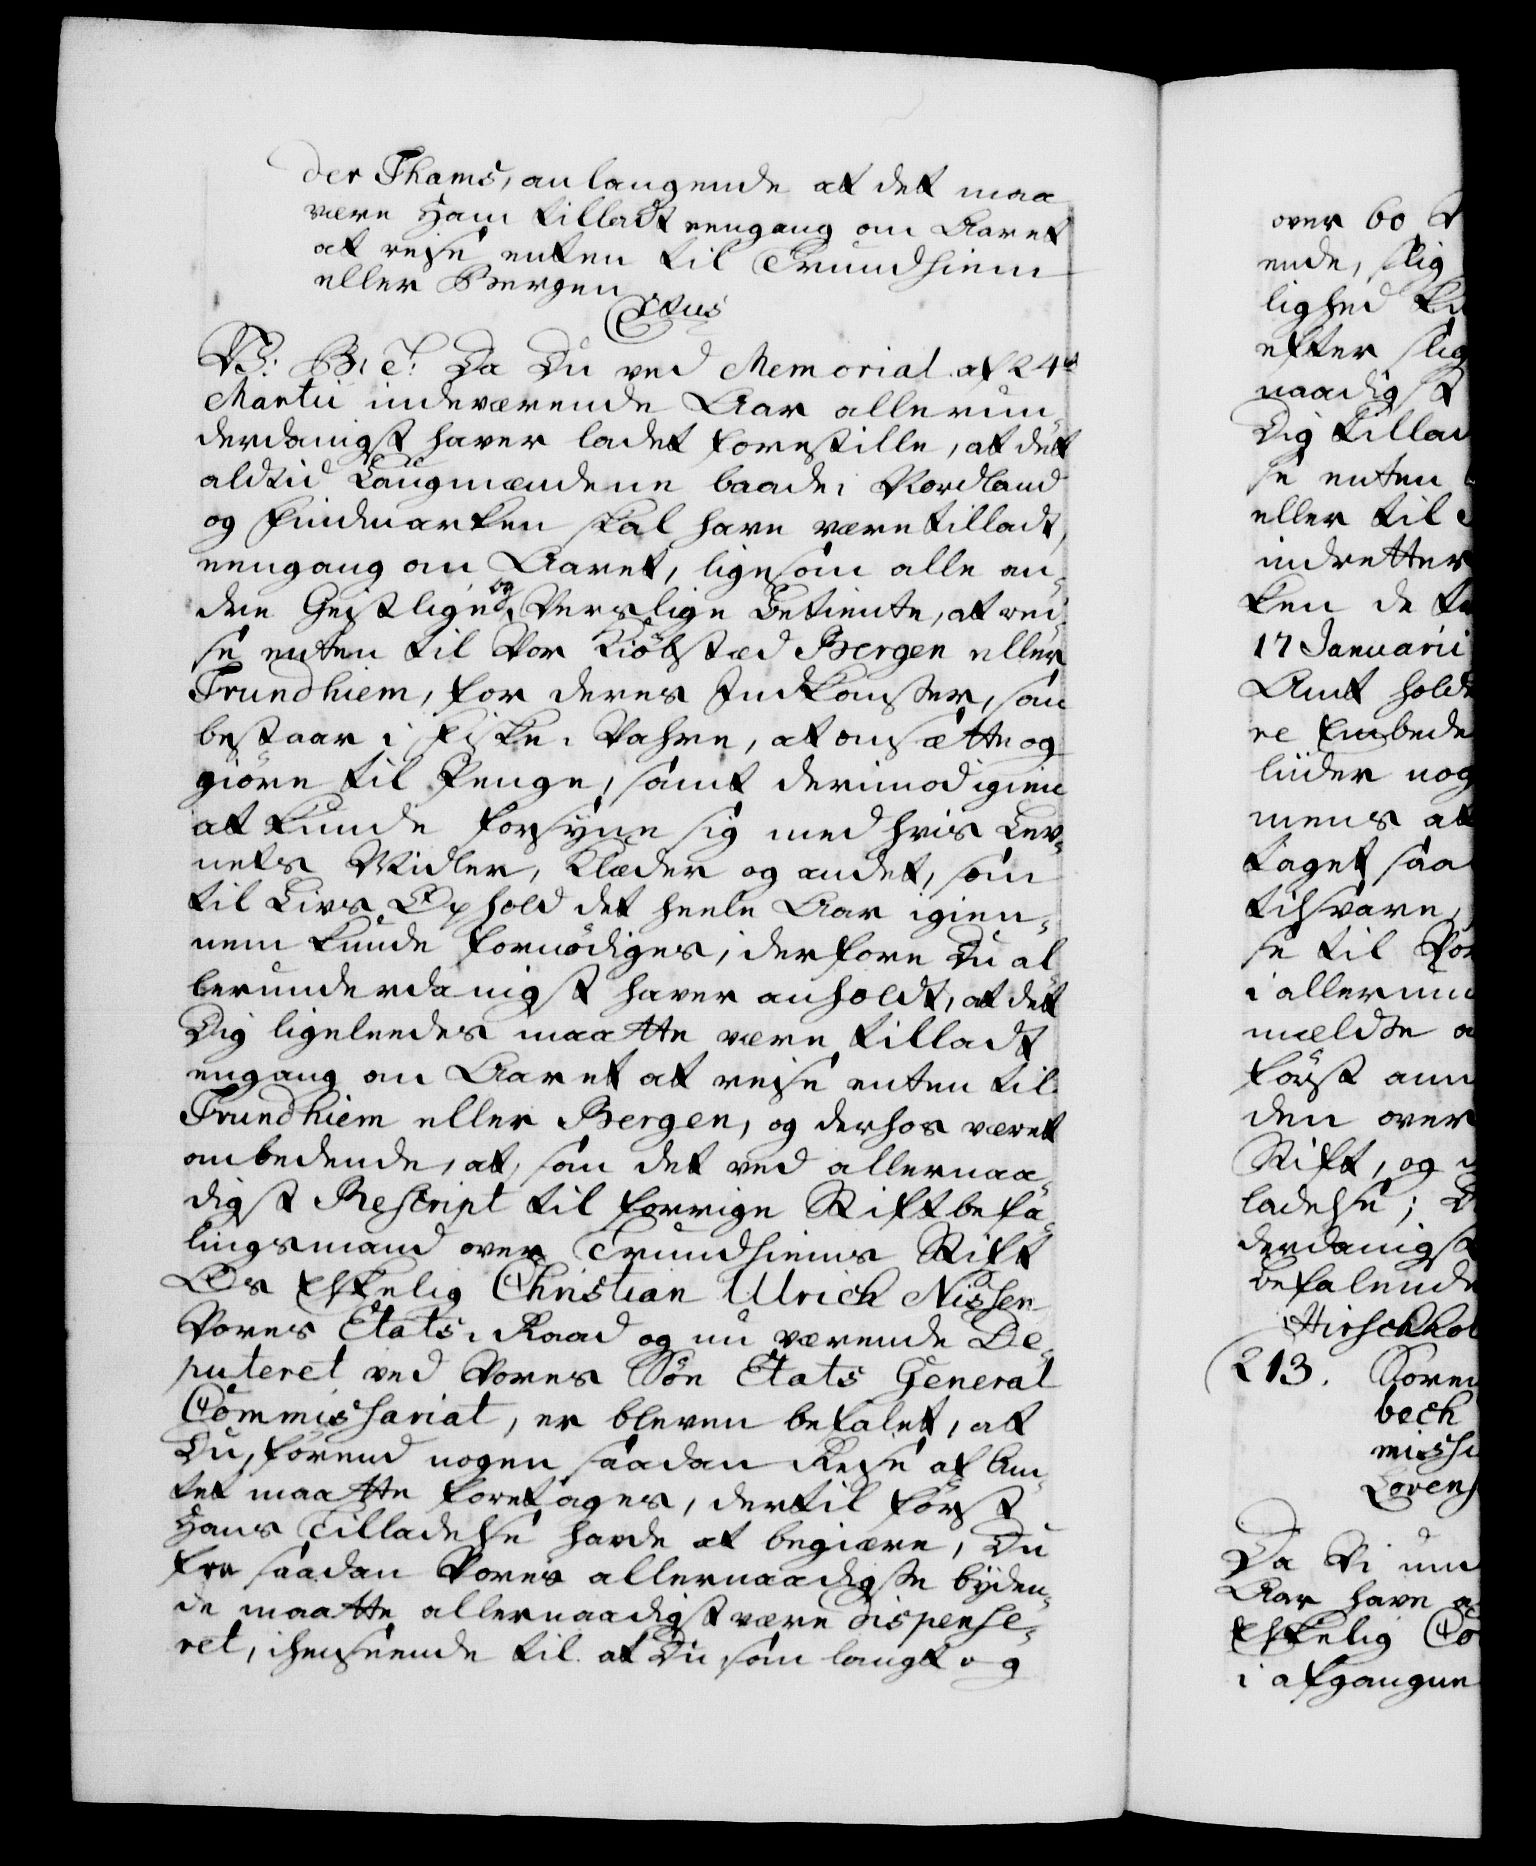 der Thams, anlangende at det maa
være Ham tilladt eengang om Aaret
at reise enten til Trundhiem
eller Bergen
V: B: T: Da Du ved Memorial af 24de
Martii indeværende Aar allerun-
derdanigst haver ladet forestille, at det
altid Laugmændene baade i Nordland
og Findmarken skal have være tilladt,
eengang om Aaret, ligesom alle an-
dre Geistlige og Verslige Betiente, at rei-
se enten til Vor Kiöbstæd Bergen eller
Trundhiem, for deres Indkomster, som
bestaar i Fiske-Vahre, at omsætte og
giöre til Penge, samt derimod igien
at kunde forsyne sig med hvis Lev-
nets Midler, Klæder og andet, som
til Livs Ophold det heele Aar igien-
nem kunde fornödiges, derfore Du al-
lerunderdanigst haver anholdt, at det
Dig ligeleedes maatte være tilladt
engang om Aaret at reise enten til
Trundhiem eller Bergen, og derhos været
ombedende, at, som det ved allernaa-
digst Rescript til forrige Stiftbefa-
lingsmand over Trundhiems Stift
Os Elskelig Christian Ulrich Nissen
Vores Etats-Raad og nu værende De-
puteret ved Vores Söe Etats General
Commissariat, er bleven befalet, at
Du, förend nogen saadan Reise af Am-
tet maatte foretages, dertil först
Hans Tilladelse havde at begiære, Du
fra saadan Vores allernaadigste byden-
de maatte allernaadigst være dispense-
ret, i henseende til at Du som langt og
over 60
ende, slig
lighed
efter slig
naadigst
Dig tillad
se enten
eller til
indretter
ken de
17 Januarii
Amt hold
re Embede
liider nog
mens at
taget saa
tilsvare,
se til Vor
i allerun
mældte
först an
den over
Stift, og
ladelse;
derdanigst
befalende
Hirschhol
213. Sören
bech
missi
Lorens
Da Vi un
Aar have
Elskelig Co
i afgangne